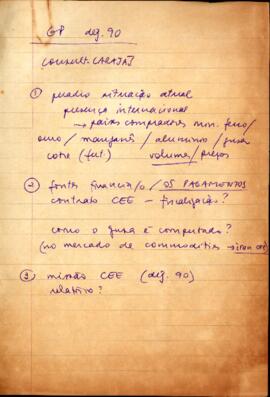 GP dez. 90
consult. CARAJÁS
① quadro situação atual
presença internacional
→ países compradores min. ferro/
ouro/manganês/alumínio/gusa
cobre (fut.) volumes/preços
② fontes financ/o/OS PAGAMENTOS
contrato CEE – fiscalização?
como o gusa é computado?
(no mercado de commodities → iron ore)
③ missão CEE (dez. 90)
relatório?